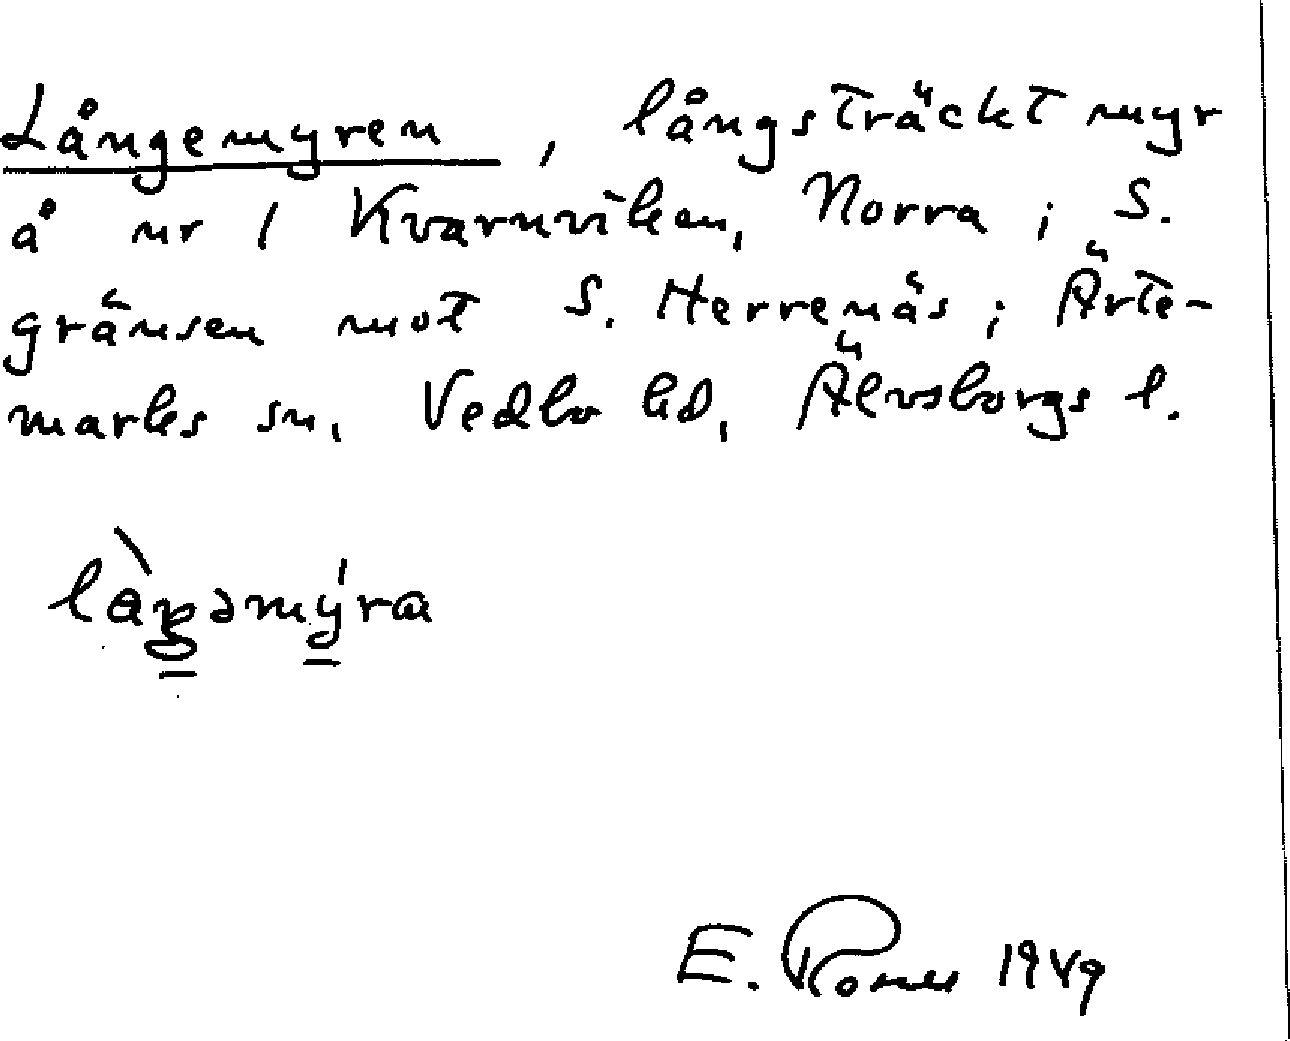 Långemyren, långsträckt myr
å nr 1 Kvarnviken, Norra i S.
gränsen mot S. Herrenäs i Ärte-
marks sn, Vedbo hd, Älvsborgs l.
E. 1949